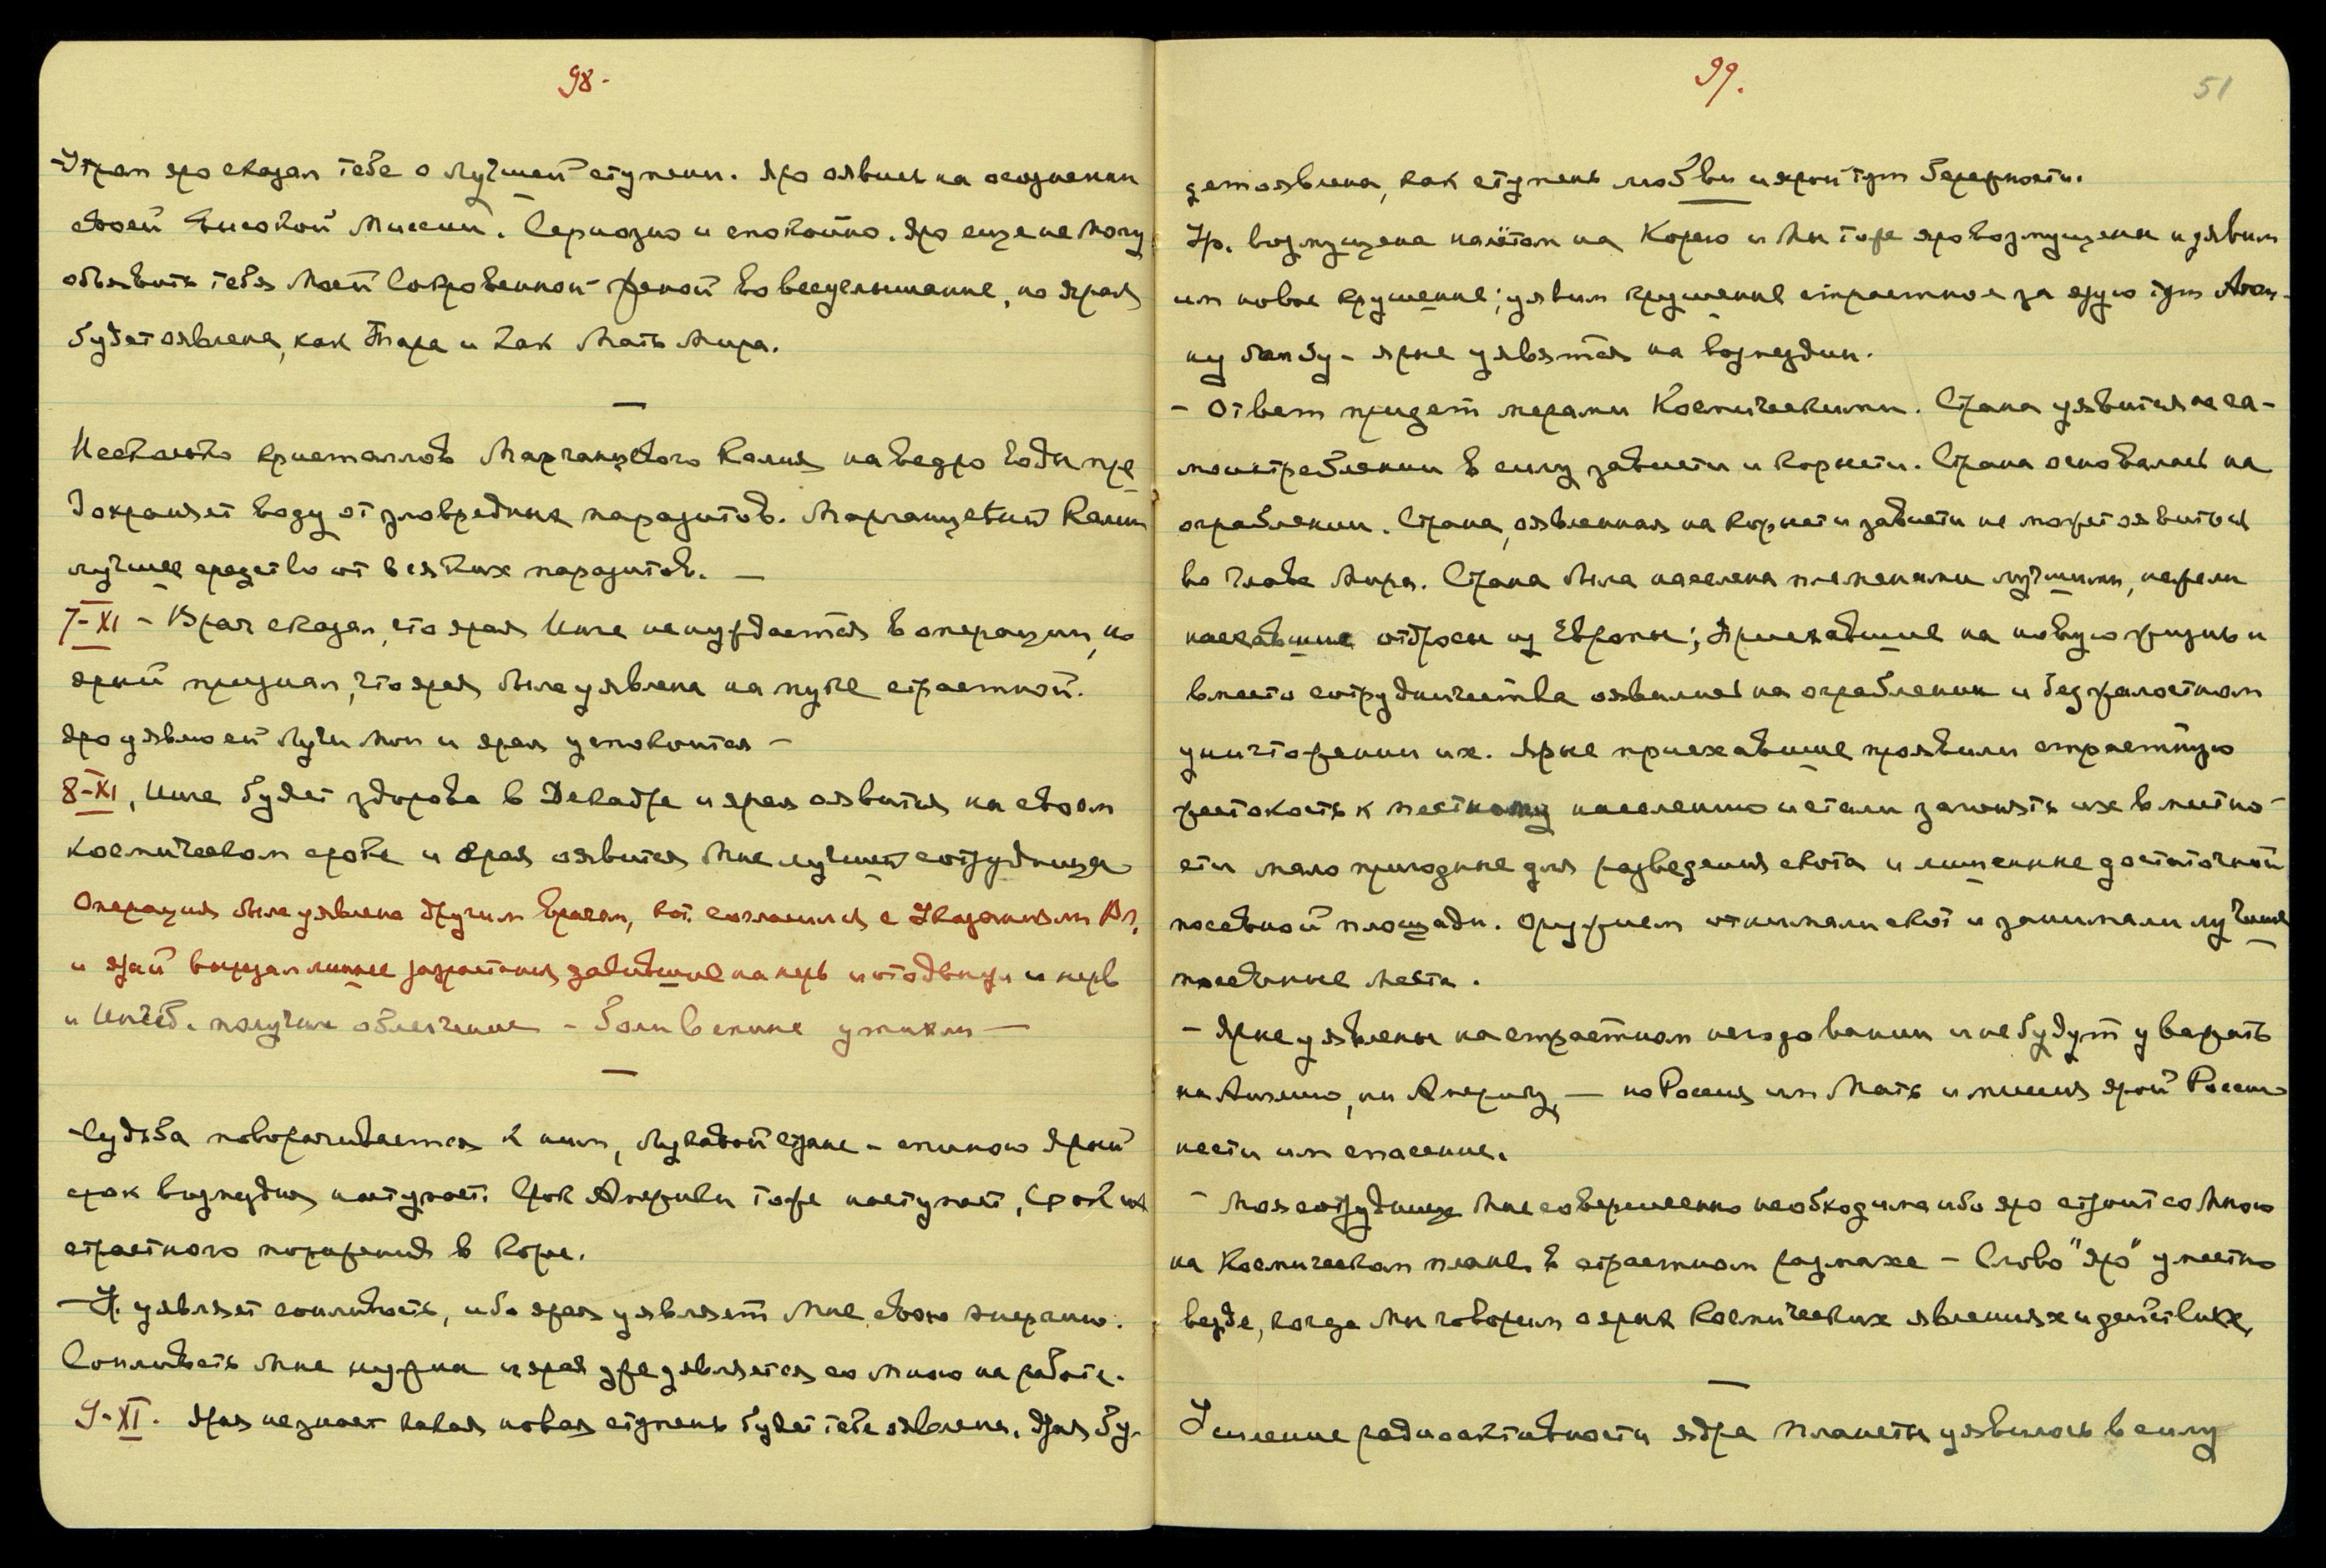 98-
-Утром яро сказал тебе о лучшей ступени. Яро оявись на осознании
своей высокой Миссии. Серьозно и спокойно. Яро еще не могу
объявить тебя Моей Сокровенной Женой во всеуслышание, но ярая
будет оявлена, как Тара и как Мать Мира.
—
Несколько кристаллов Марганцевого Калия на ведро воды пре
дохраняет воду от зловредных паразитов. Марганцевый Калий
лучшее средство от всяких паразитов. —
7-XI - Врач сказал, что ярая Инге не нуждается в операции, но
ярый признал, что ярая была уявлена на пути страстной.
Яро уявлю ей Лучи Мои и ярая успокоится -
8-XI, Инге будет здорова в Декабре и ярая оявится на своем
космическом сроке и ярая оявится Мне лучшей сотрудницей
Операция была уявлена другим врачом, кот. согласился с Указанием Вл.
и ярый вырезал лишнее разрастания давившие на нерв и отодвинул и нерв
и получила облегчение - боли в спине утихли —
—
-Судьба поворачивается к ним, Лукавой стране - спиною. Ярый
срок возмездия наступает. Срок Америки тоже наступает, срок их
страстного поражения в Корее.
- У. уявляет сонливость, ибо ярая уявляет Мне свою энергию.
Сонливость Мне нужна и ярая уже уявляется со мною на работе.
9-XI. Ярая не знает какая новая ступень будет тебе оявлена. Ярая бу-
99.
51
дет оявлена, как ступень любви и ярой тут бережности.
Ур. возмущена налётом на Корею и Мы тоже яро возмущены и уявим
им новое крушение; уявим крушение страстное за ярую тут Атом-
ну бомбу - ярые уявятся на возмездии.
- Ответ придет мерами Космическими. Страна уявится на са-
моистреблении в силу зависти и корысти. Страна основалась на
ограблении. Страна, оявленная на корысти и зависти не может оявиться
во главе Мира. Страна была населена племенами лучшими, нежели
наехавшие отбросы из Европы; Приехавшие на новую жизнь и
вместо сотрудничества оявились на ограблении и безжалостном
уничтожении их. Ярые приехавшие проявили страстную
жестокость к местному населению и стали загонять их в местно-
сти мало пригодные для разведения скота и лишенные достаточной
посевной площади. Оружием отнимали скот и занимали лучшие
посевные места.
- Ярые уявлены на страстном негодовании и не будут уважать
ни Англию, ни Америку, — но Россия им Мать и миссия ярой России
нести им спасение.
- Моя сотрудница Мне совершенно необходима ибо яро строит со Мною
на Космическом плане в страстном размахе - Слово "яро" уместно
везде, когда Мы говорим о ярых космических явлениях и действиях.
—
Усиление радиоактивности ядра планеты уявилось в силу